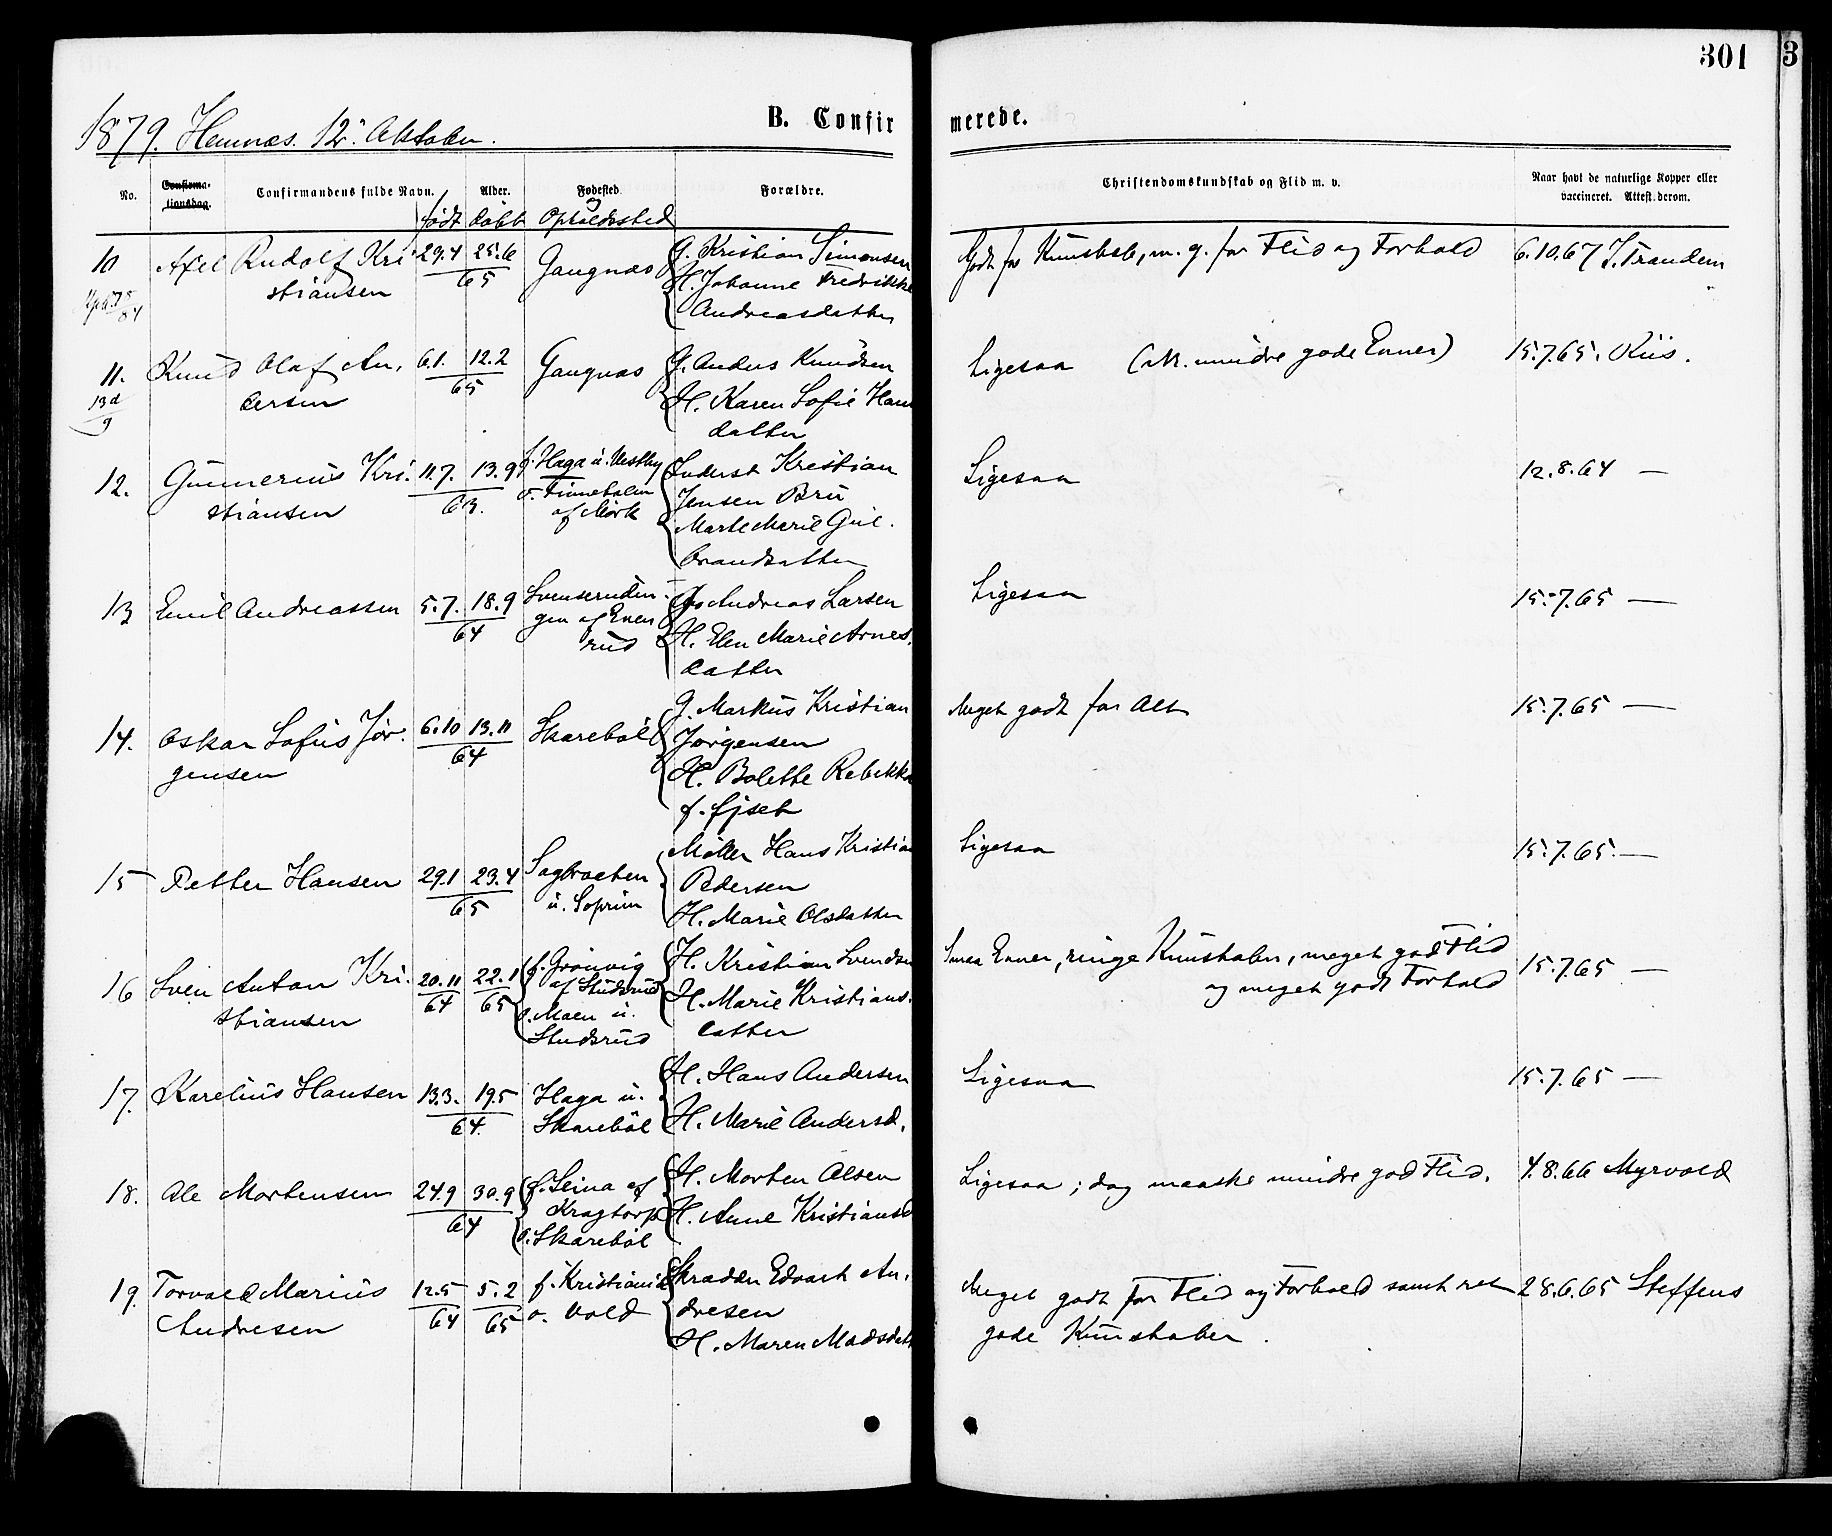 301
3
1879. Hemnæs. 12. Oktober.
B. Confir
merede.
No.
Confirma-
tionsdag.
Confirmandens fulde Navn.
Alder.
Fødested
Forældre.
Christendomskundskab og Flid m. v.
Naar havt de naturlige Kopper eller
vaccineret. Attest. derom.
født
døbt
og
Opholdssted
10 Axel Rudolf Kri 29.4 25.6 Gangnæs G. Kristian Simonsen Godt for Kundskab, m. g. for Flid og Forhold 6.10.67 J. Trandem
stiansen 65 H. Johanne Fredrikke
Andreasdatter
11. Knud Olaf An. 6.1. 12.2 Gangnæs G. Anders Knudsen Ligesaa (M. mindre gode Evner) 15.7.65. Riis.
dersen 65 H. Karen Sofie Hans
datter
13d
9
12. Gunnerius Kri. 11.7. 13.9 f. Haga u. Vestby Inderst Kristian Ligesaa 12.8.64 —
stiansen 63. o. Finnebalen Jensen Bru
af Mørk Marte Marie Gul.
brandsatter
13 Emil Andreassen 5.7. 18.9 Svenserudin- Andreas Larsen Ligesaa 15.7.65 —
64 gen af Even H. Elen Marie Arnes.
rud datter
14. Oskar Sofus Jør. 6.10 13.11 Skarebøl G. Markus Kristian Meget godt for Alt 15.7.65 —
gensen 64 Jørgensen
H. Bolette Rebekka
f. Gjset
15 Petter Hansen 29.1 23.4 Sagbraten Møller Hans Kristian Ligesaa 15.7.65. —
65 u. Soprim Pedersen
H. Marie Olsdatter
16 Sven Anton Kri. 20.11 22.1 f. Grønvig H. Kristian Svendsen Smaa Evner, ringe Kundskaber, meget god Flid 15.7.65 —
stiansen 64 65 af Studsrud H. Marie Kristians. og meget godt Forhold
o. Moen u. datter
Studsrud
17. Karelius Hansen 13.3. 19.5 Haga u. H. Hans Andersen Ligesaa 15.7.65 —
64. Skarebøl H. Marie Andersd.
18. Ole Mortensen 24.9 30.9 f. Leina af H. Morten Olsen Ligesaa; dog maaske mindre god Flid. 4.8.66 Myrvold
64 Kragtorp H. Anne Kristiansd
o. Skarebøl
19. Torvald Marius 12.5 5.2 f. Kristiania Skrædder Edvart An. Meget godt for Flid og Forhold samt ret 28.6.65 Steffens
Andresen 64 65 o. Vold dresen gode Kundskaber.
H. Maren Madsdatt